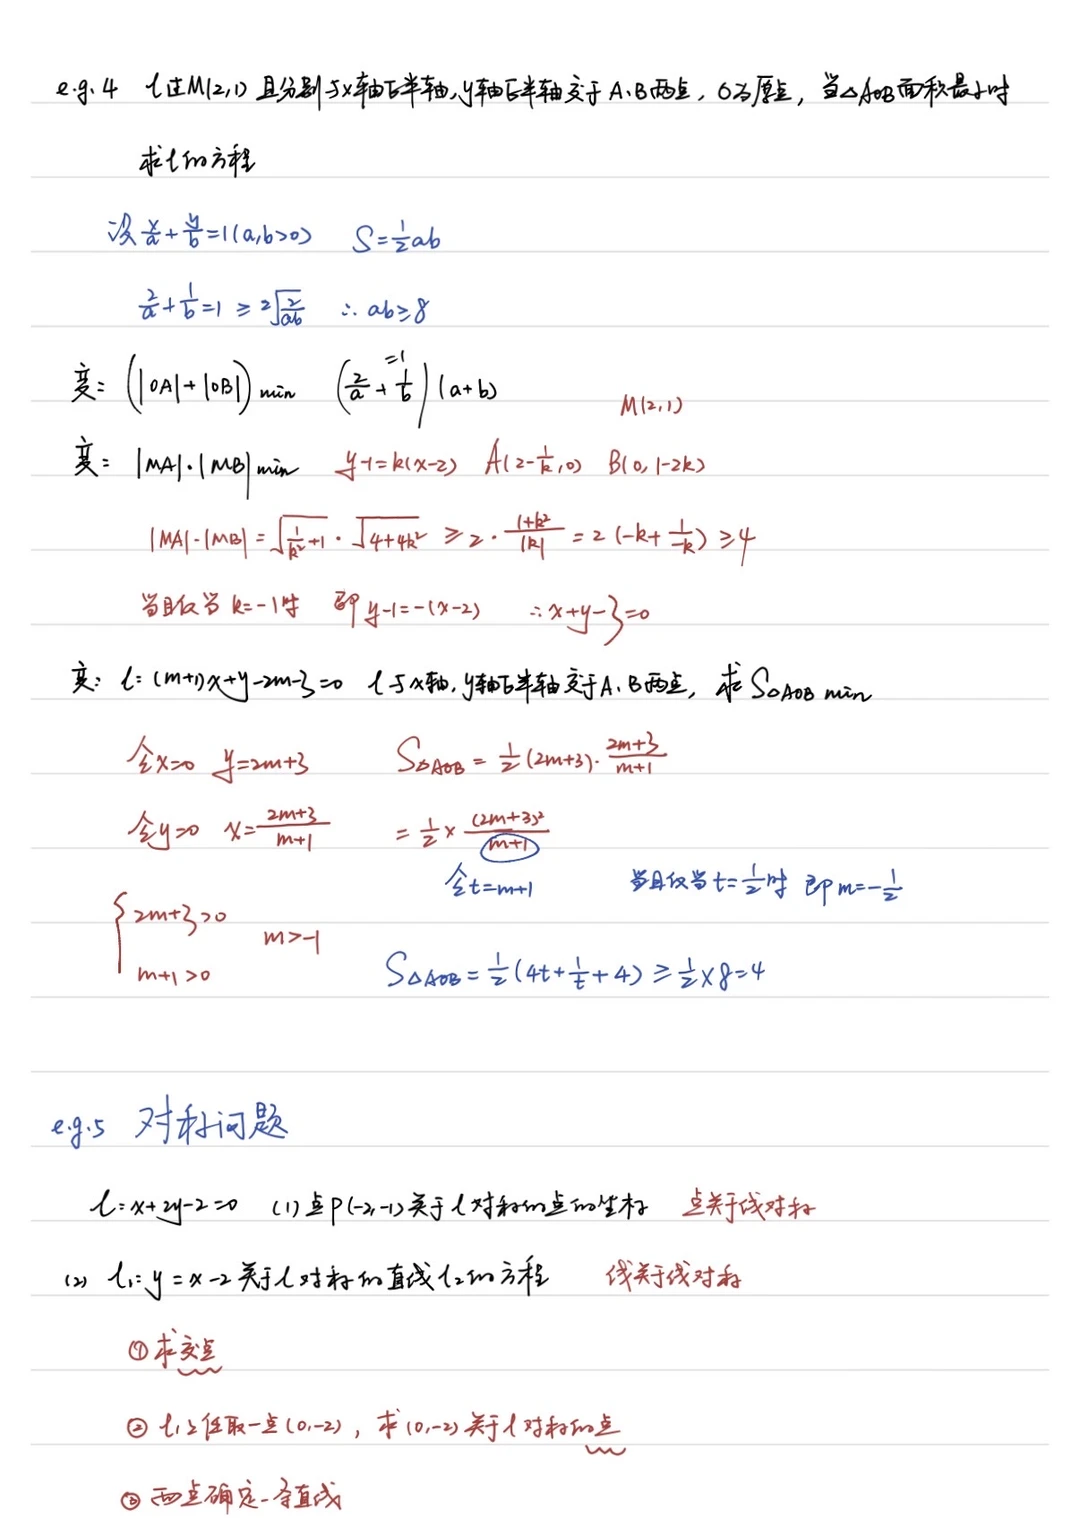 e.g.4 l过M(2,1)且分别与x轴正半轴,y轴正半轴交于A、B两点，O为原点，当△AOB面积最小时
求l的方程
设x/a+y/b=1(a,b>0) S=1/2ab
2/a+1/b=1≥2√(2/ab) ∴ab≥8
变: (|OA|+|OB|)min (2/a+1/b)(a+b) =1
M(2,1)
变: |MA|·|MB|min y-1=k(x-2) A(2-1/k,0) B(0,1-2k)
|MA|·|MB|=√(1/k²+1)·√(4+4k²)≥2·(1+k²)/|k|=2(-k+1/-k)≥4
当且仅当k=-1时 即y-1=-(x-2) ∴x+y-3=0
变: l:(m+1)x+y-2m-3=0 l与x轴,y轴正半轴交于A、B两点，求S△AOB min
令x=0 y=2m+3 S△AOB=1/2(2m+3)·(2m+3)/(m+1)
令y=0 x=(2m+3)/(m+1) =1/2×(2m+3)²/(m+1)
令t=m+1 当且仅当t=1/2时 即m=-1/2
{2m+3>0
m>-1
m+1>0 S△AOB=1/2(4t+1/t+4)≥1/2×8=4
e.g.5 对称问题
l:x+2y-2=0 (1)点P(-2,-1)关于l对称的点的坐标 点关于线对称
(2) l₁:y=x-2关于l对称的直线l₂的方程 线关于线对称
①求交点
②l₁上任取一点(0,-2)，求(0,-2)关于l对称的点
③两点确定一条直线